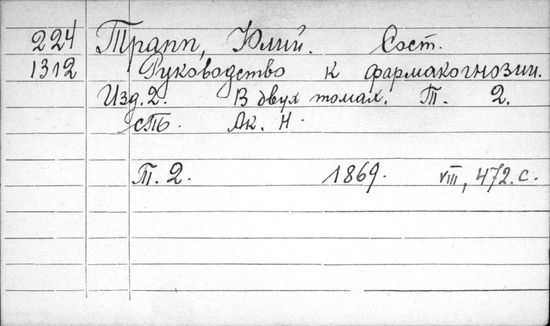 224 Трапп, Юлий. Сост.
1312 Руководство к фармакогнозии.
Изд. 2. В двух томах. Т. 2.
СПб. Ак. Н.
Т. 2. 1869. VIII, 472. с.